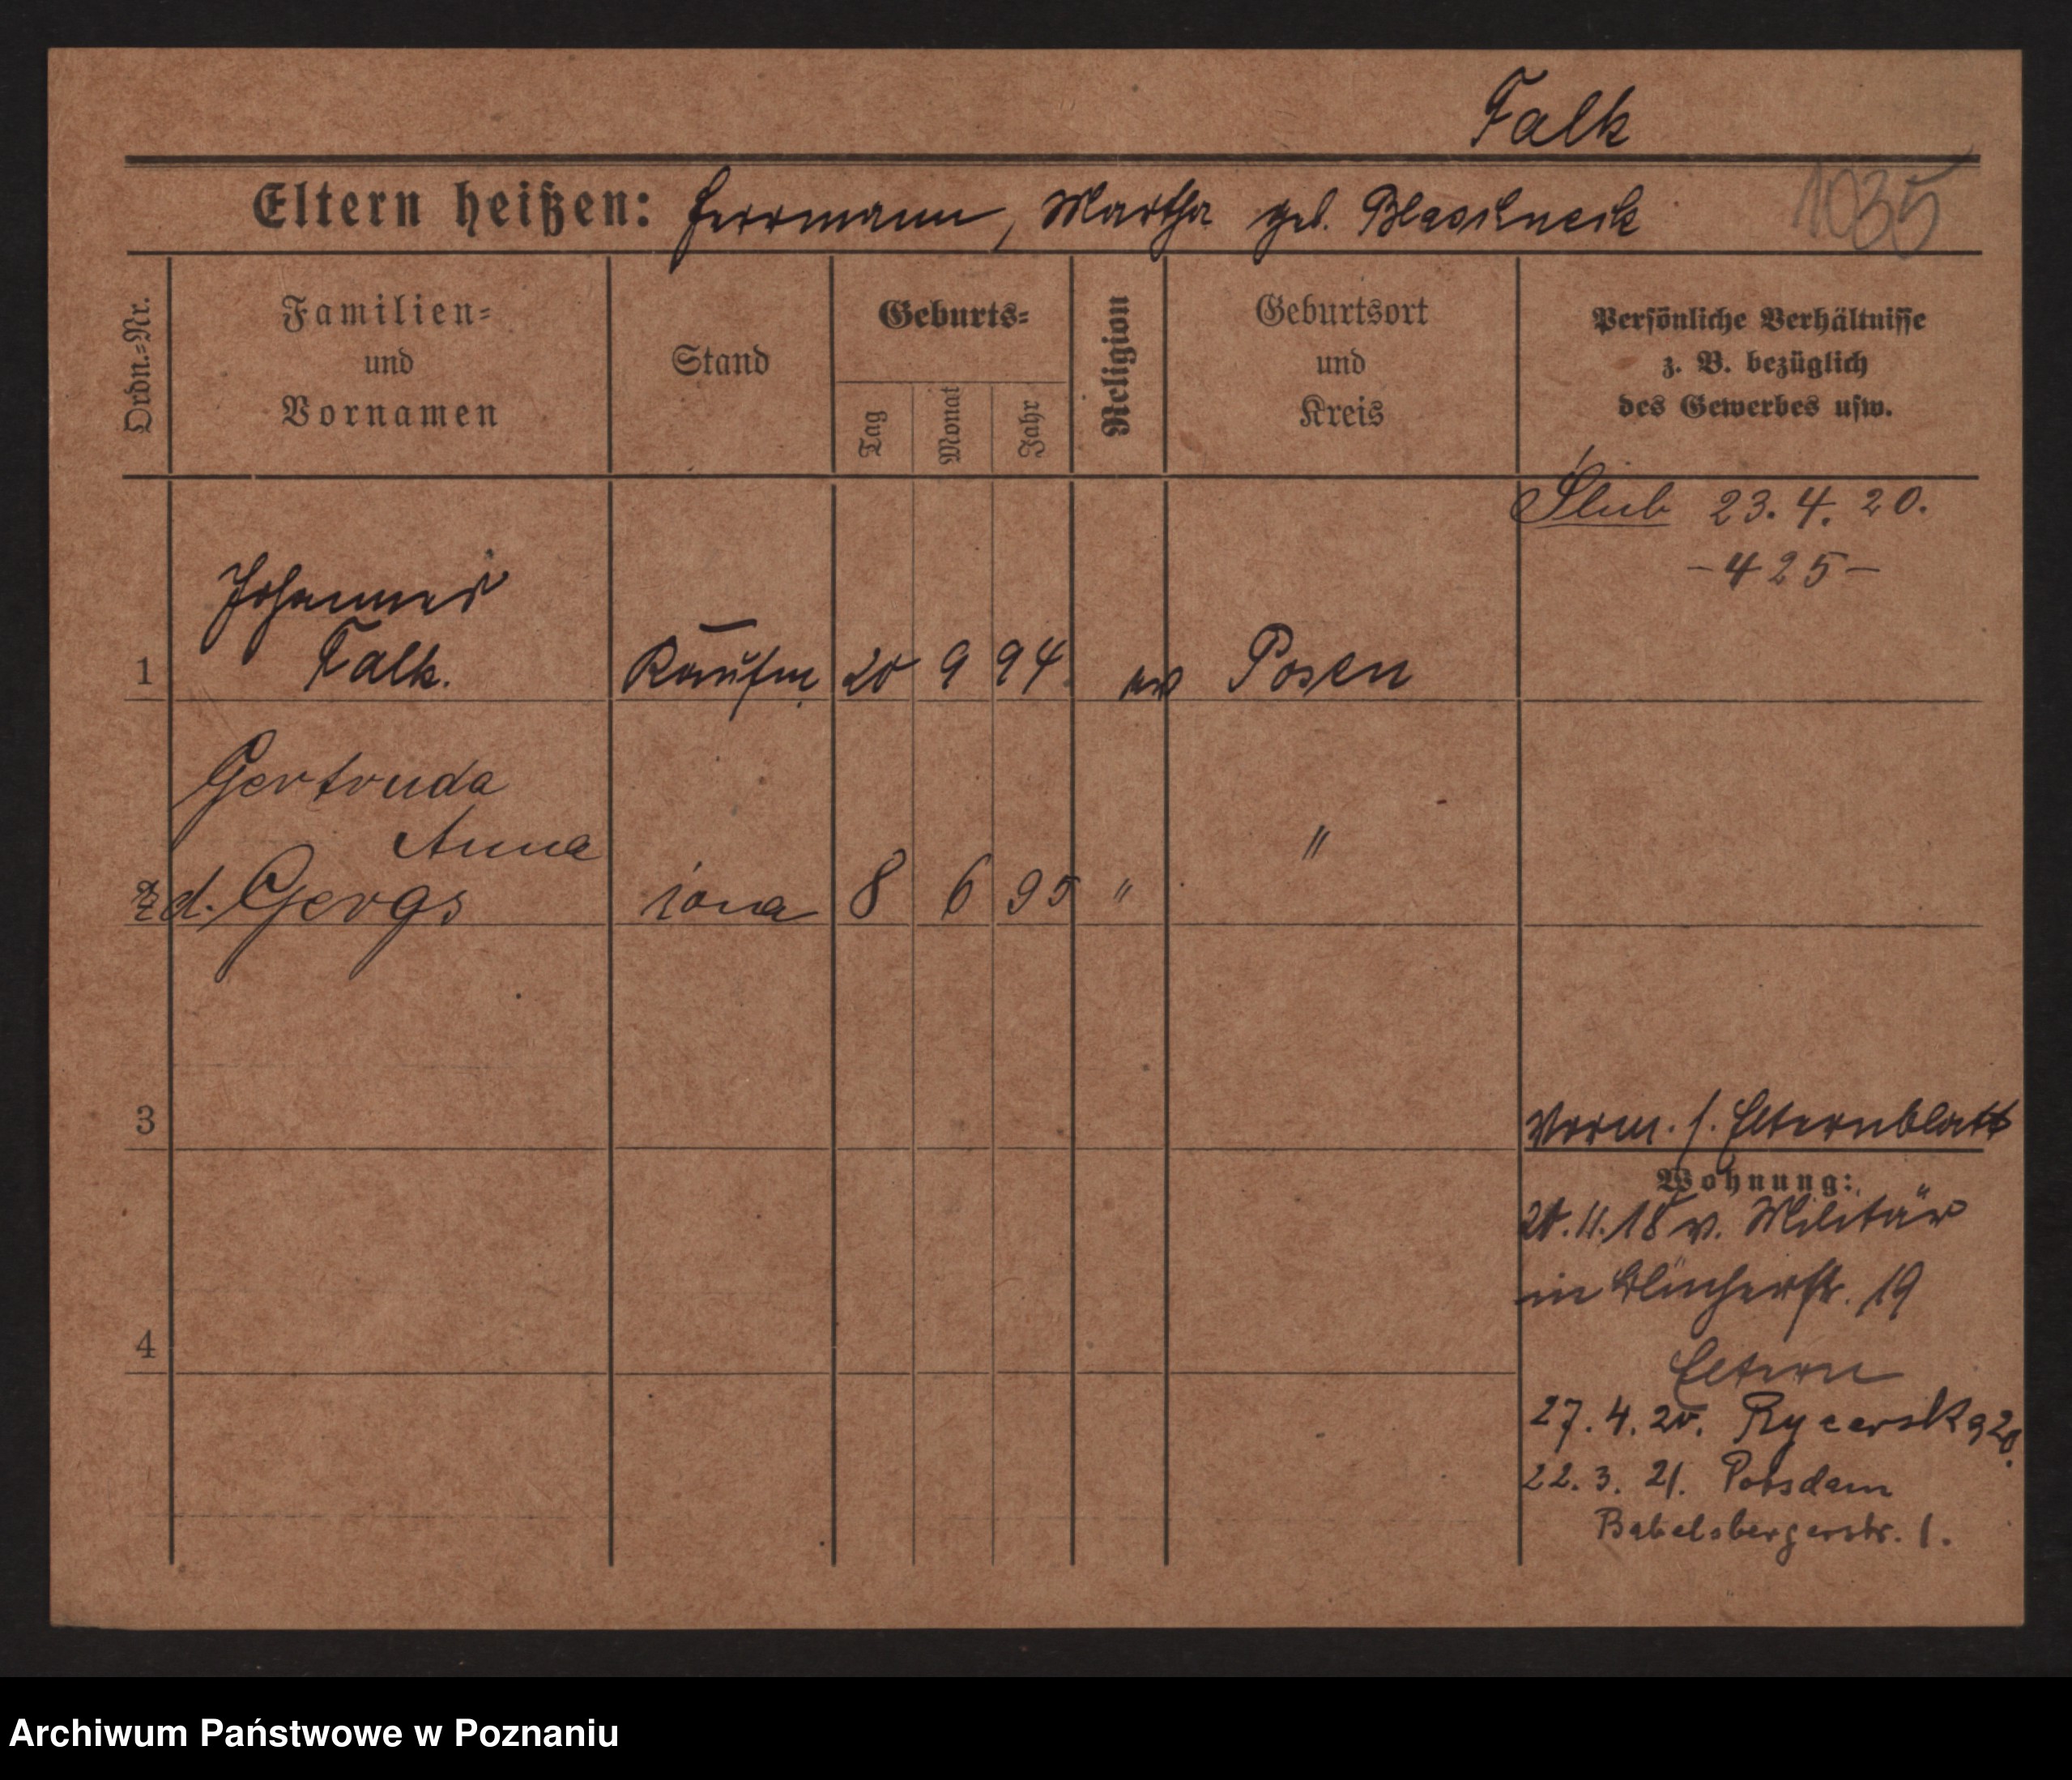 Falk
Eltern heißen: Herrmann, Martha geb.
1035
Ordn.=Nr.
Familien=
und
Vornamen
Stand
Geburts=
Tag
Monat
Jahr
Religion
Geburtsort
und
Kreis
Persönliche Verhältnisse
z. B. bezüglich
des Gewerbes usw.
Ślub 23.4.20.
-425-
Johannes
1 Falk. Kaufm 20 9 94 ev Posen
Gertruda
Anna "
2 z d. Gergs żona 8 6 95 "
3
Vorm. s. Elternblatt
Wohnung:
.11.18 v. Militär
in Blücherstr. 19
4
Eltern
27.4.20. Rycerska 20.
22.3.21. Potsdam
Babelsbergerstr. 1.
Archiwum Państwowe w Poznaniu